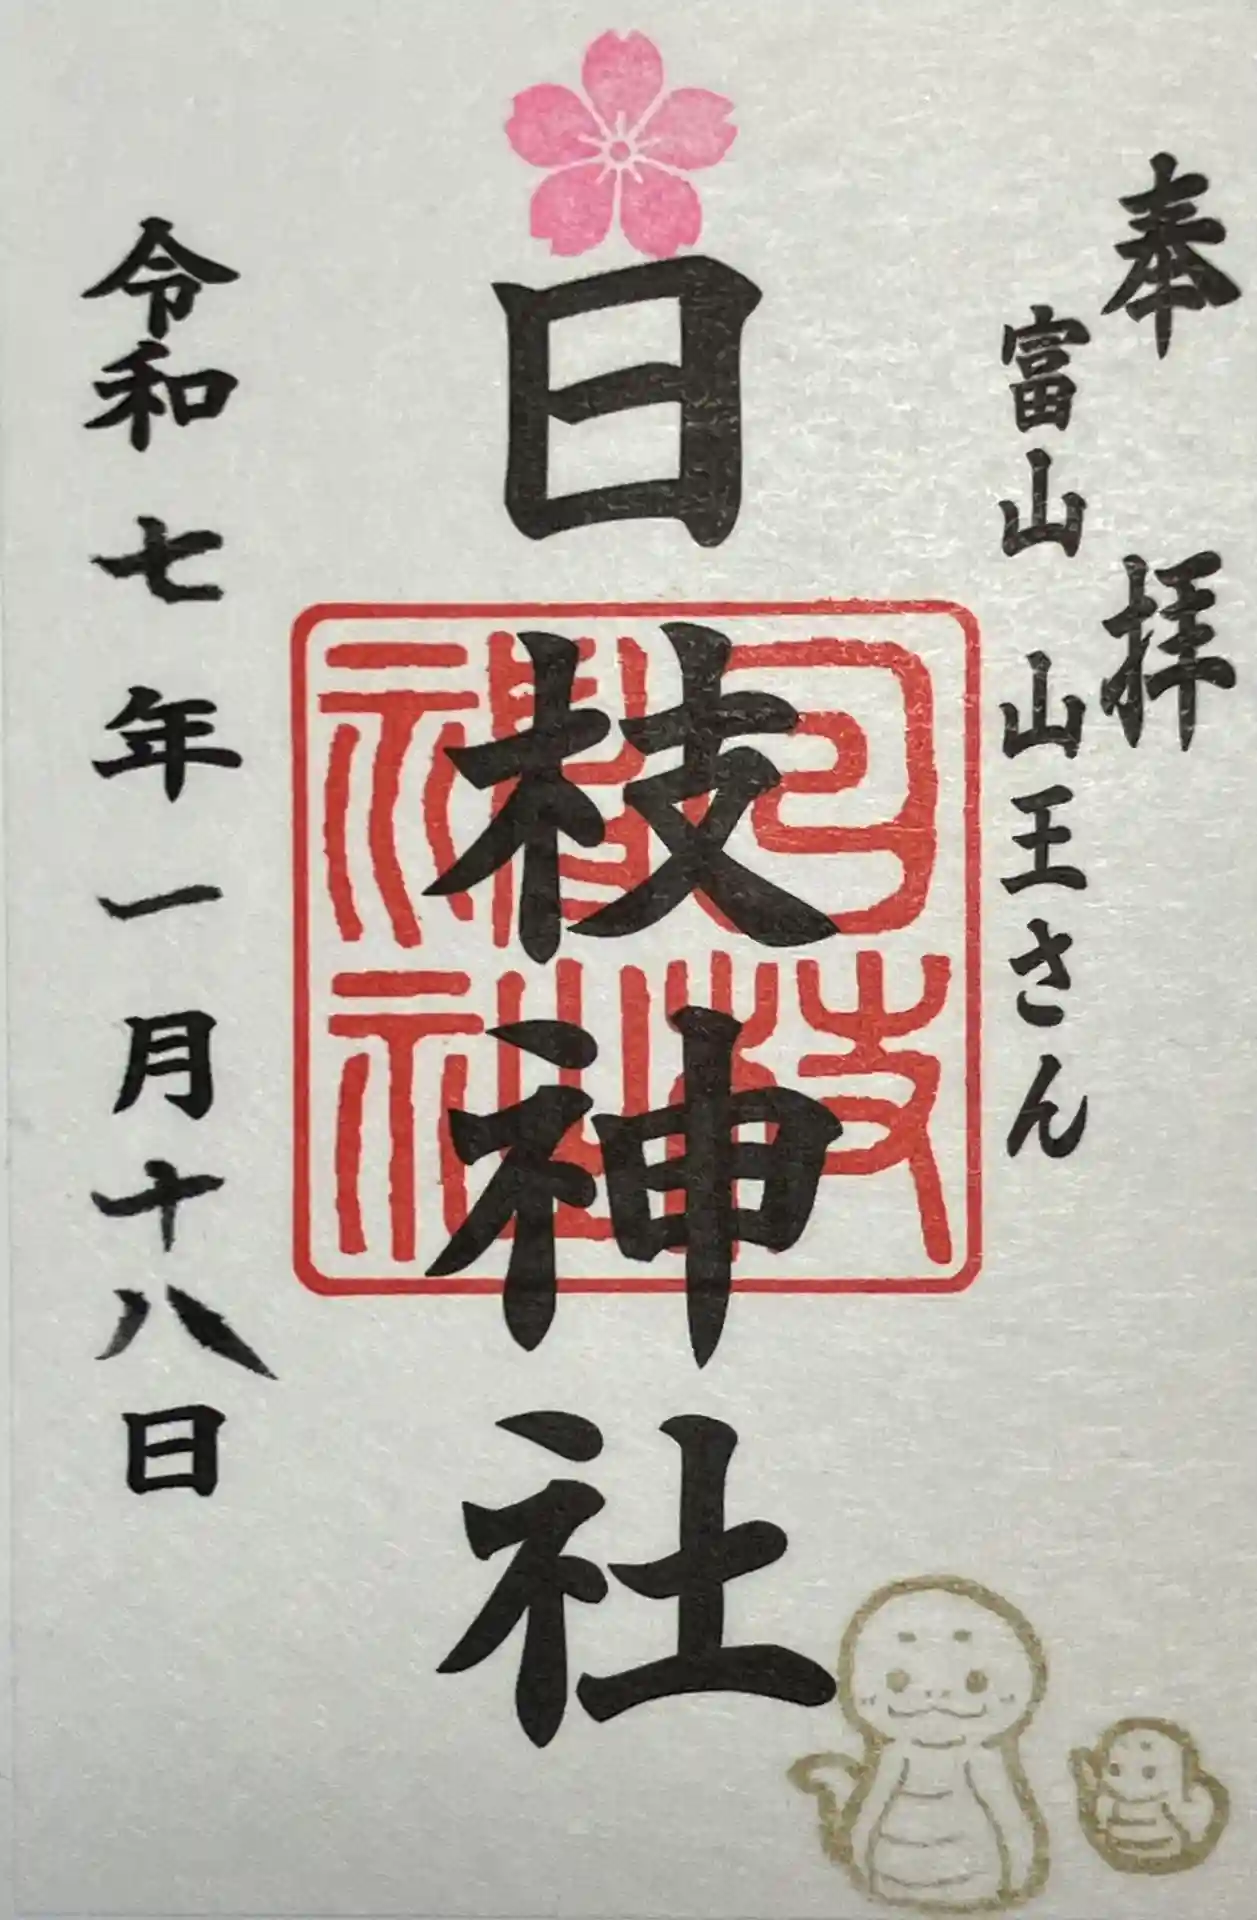 奉拝
富山 山王さん
日枝神社
日枝神社
令和七年一月十八日